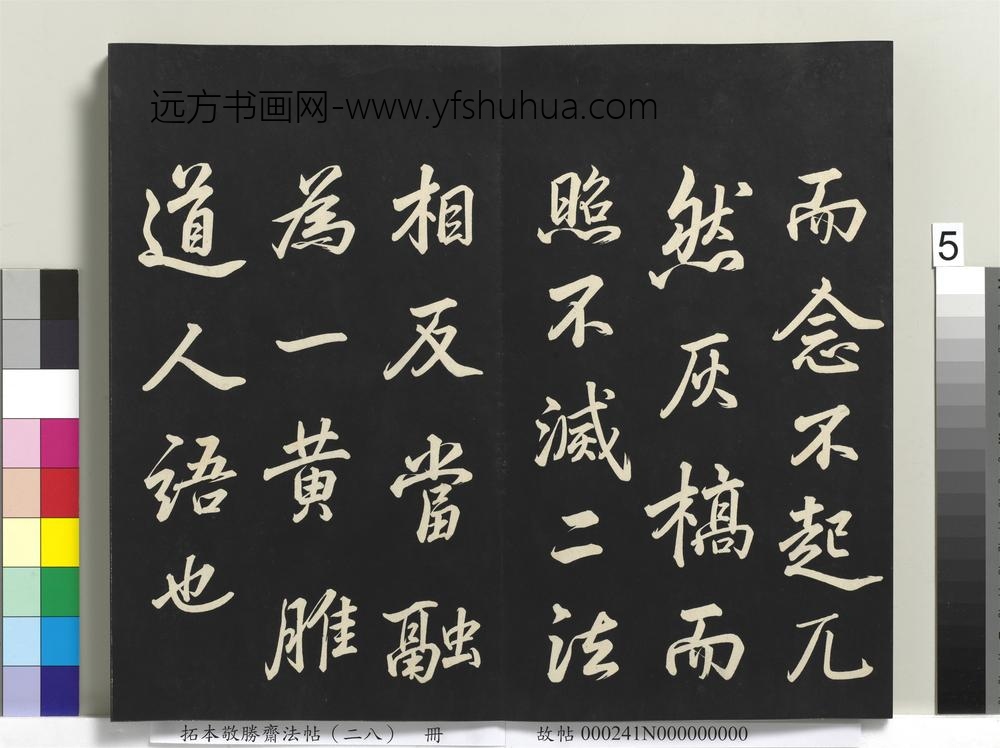 远方书画网-www.yfshuhua.com
而念不起兀
然灰槁而
照不滅二法
相反當融
為一黄雎
道人語也
5
拓本敬勝齋法帖（二八） 冊
故帖 000241N000000000